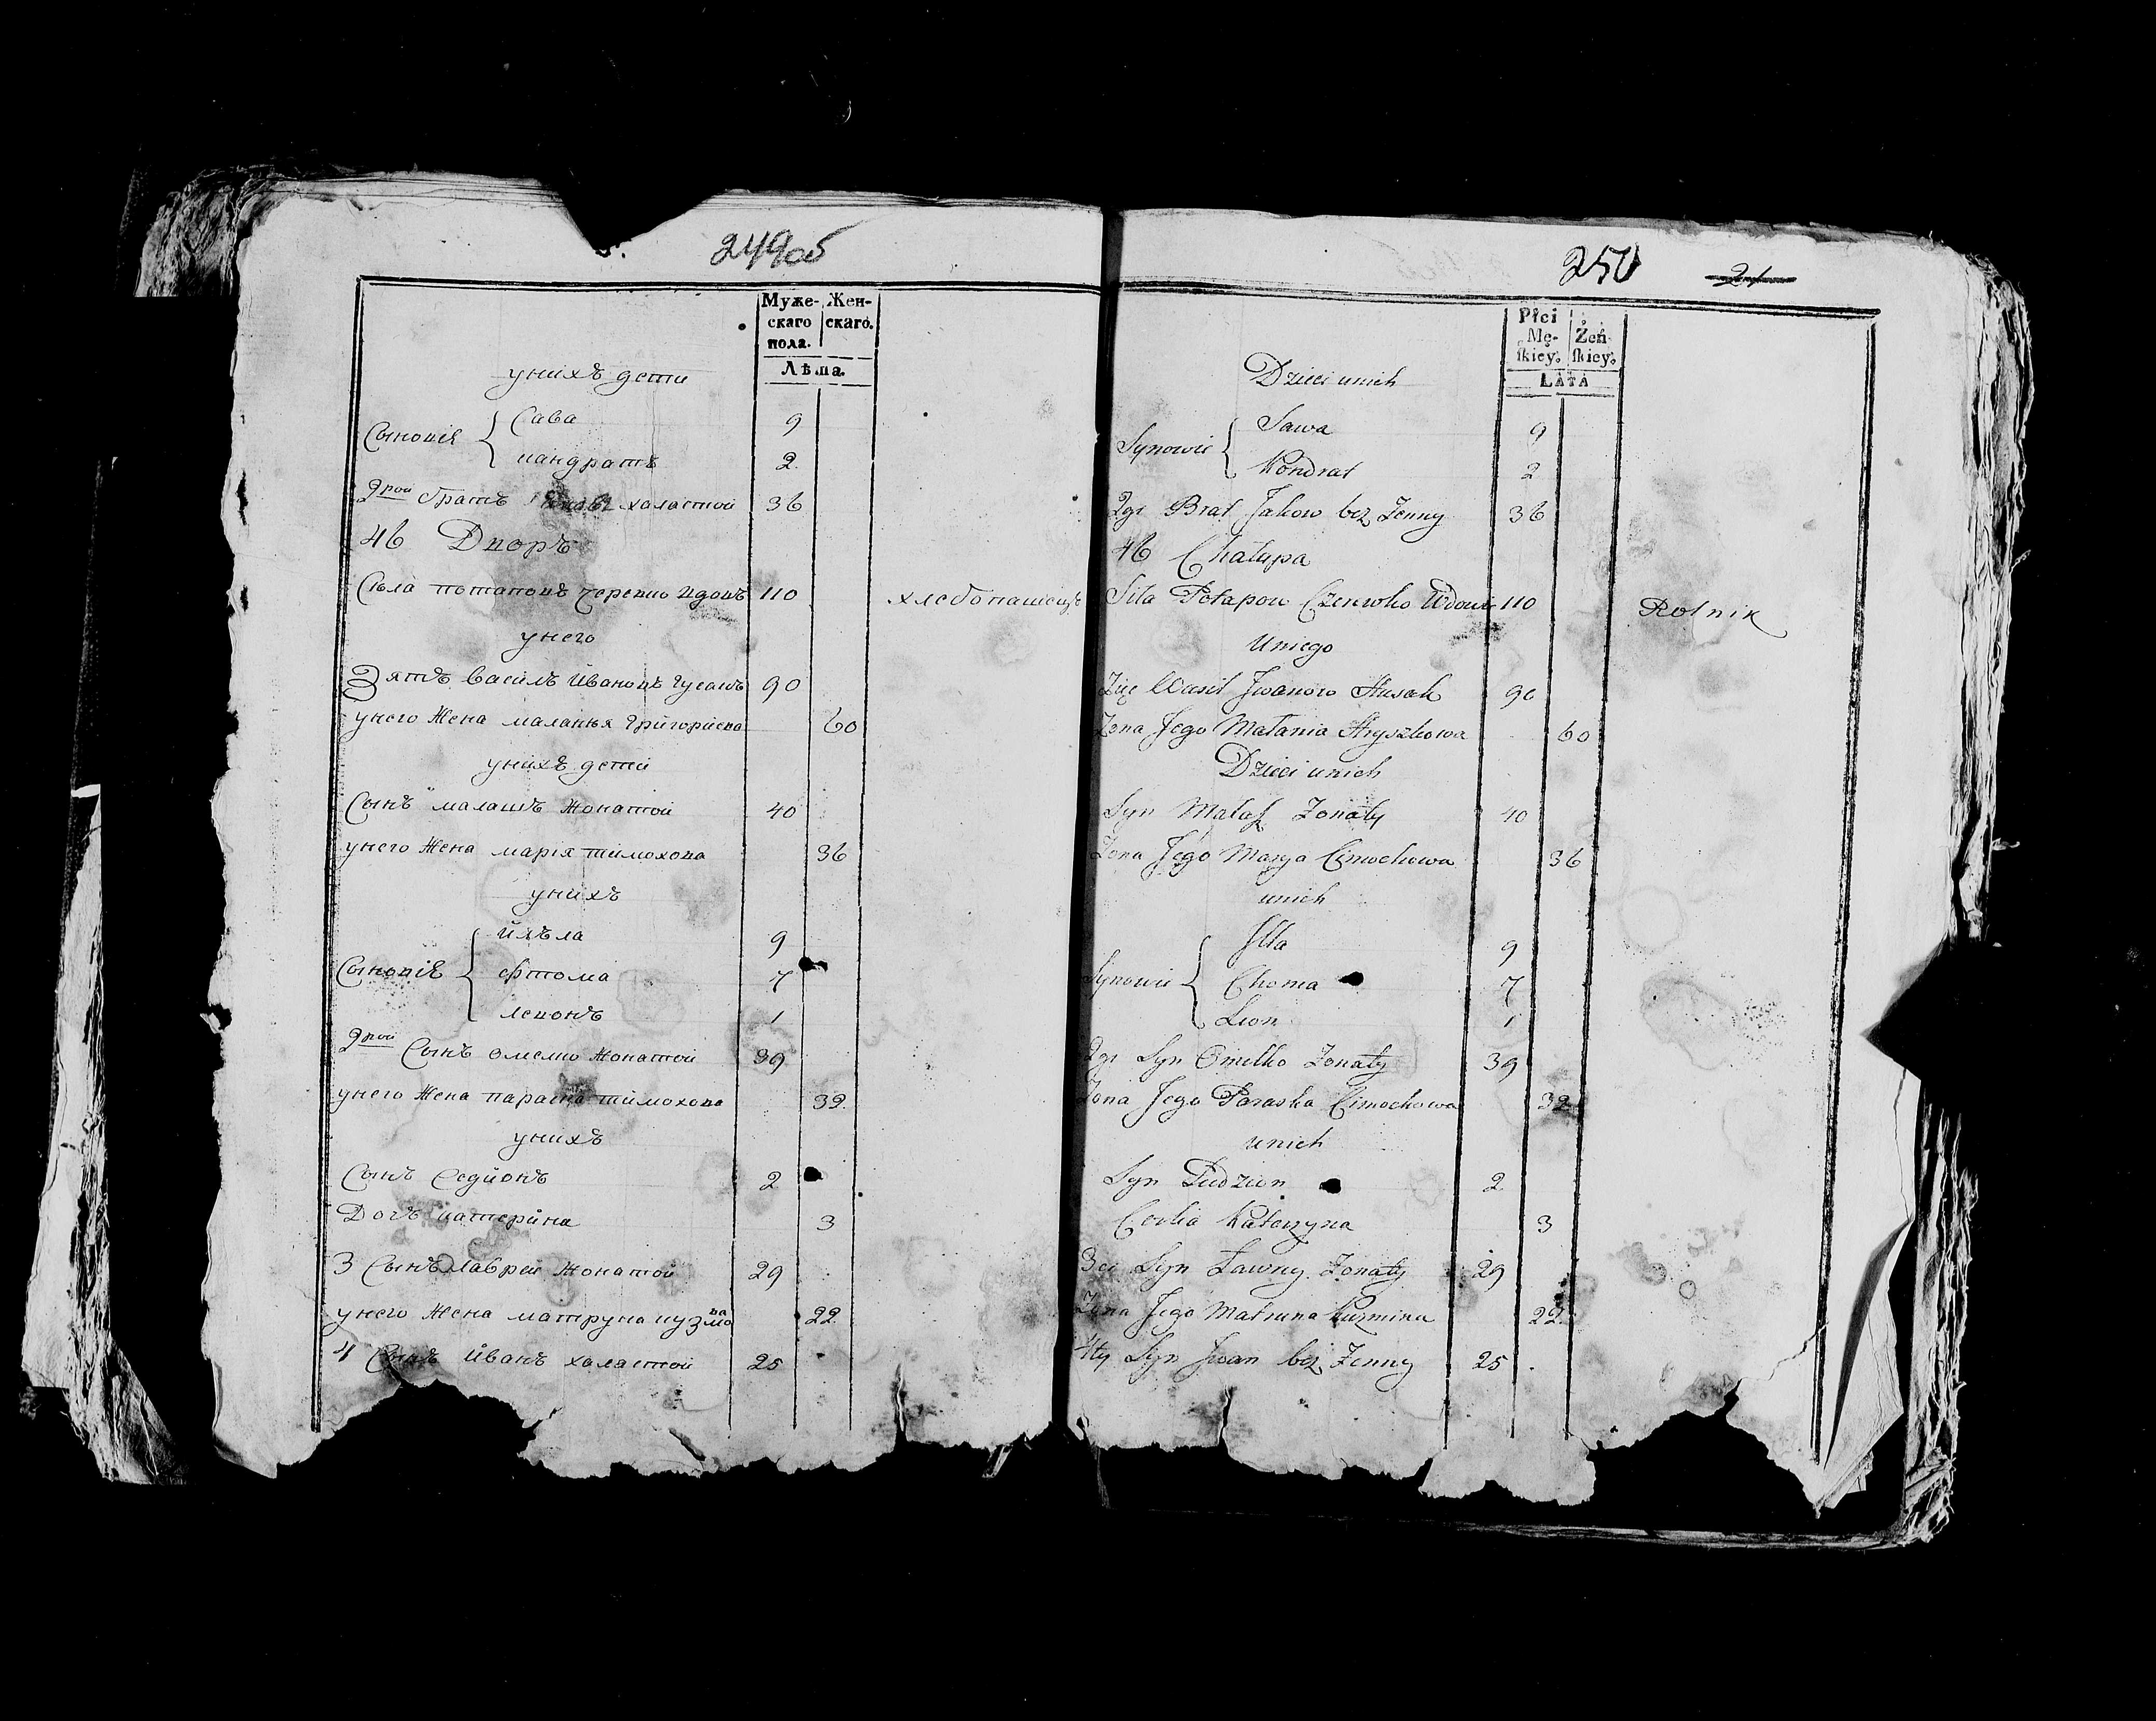 249об
Муже- Жен-
скаго скаго.
пола.
Лѣта.
унихъ дети
Сыновіѧ { Сава 9
кандратъ 2
2рой братъ халастой 36
46 Дворъ
Сѣла потаповъ черевко вдовъ 110 хлебопашецъ
унего
Зятъ василъ Ивановъ гусакъ 90
унего жена маланья григориева 60
унихъ дети
Сынъ малашъ жонатой 40
унего жена марія тимохова 36
унихъ
9
Сыновіѧ { фтома 7
левонъ 1
2рой Сынъ омелко жонатой 39
унего жена параска тимохова 32
унихъ
Сынъ 2
Дочъ катерина 3
3 Сынъ лаврей жонатой 29
унего жена матруна кузмова 22
4 Сынъ иванъ халастой 25
250 21
Płci
Mę- Żeń-
skiey. skiey.
LATA
Dzieci unich
Synowie { Sawa 9
Kondrat 2
2gi Brat Jakow bez Zenny 36
46 Chałupa
Siła Potapow Czerewko Wdowi 110 Rolnik
Uniego
Zięc Wasil Jwanow Husak 90
Zona Jego Małania Hryszkowa 60
Dzieci unich
Syn Małasz Zonaty 40
Zona Jego Marya Cimochowa 36
unich
9
Synowie { Choma 7
Leon 1
2gi Syn Omelko Zonaty 39
Zona Jego Paraska Cimochowa 32
unich
Syn 2
Corka Katerzyna 3
3ci Syn Ławry Zonaty 29
Zona Jego Matruna Kuzmina 22
4ty Syn Jwan bez Zenny 25